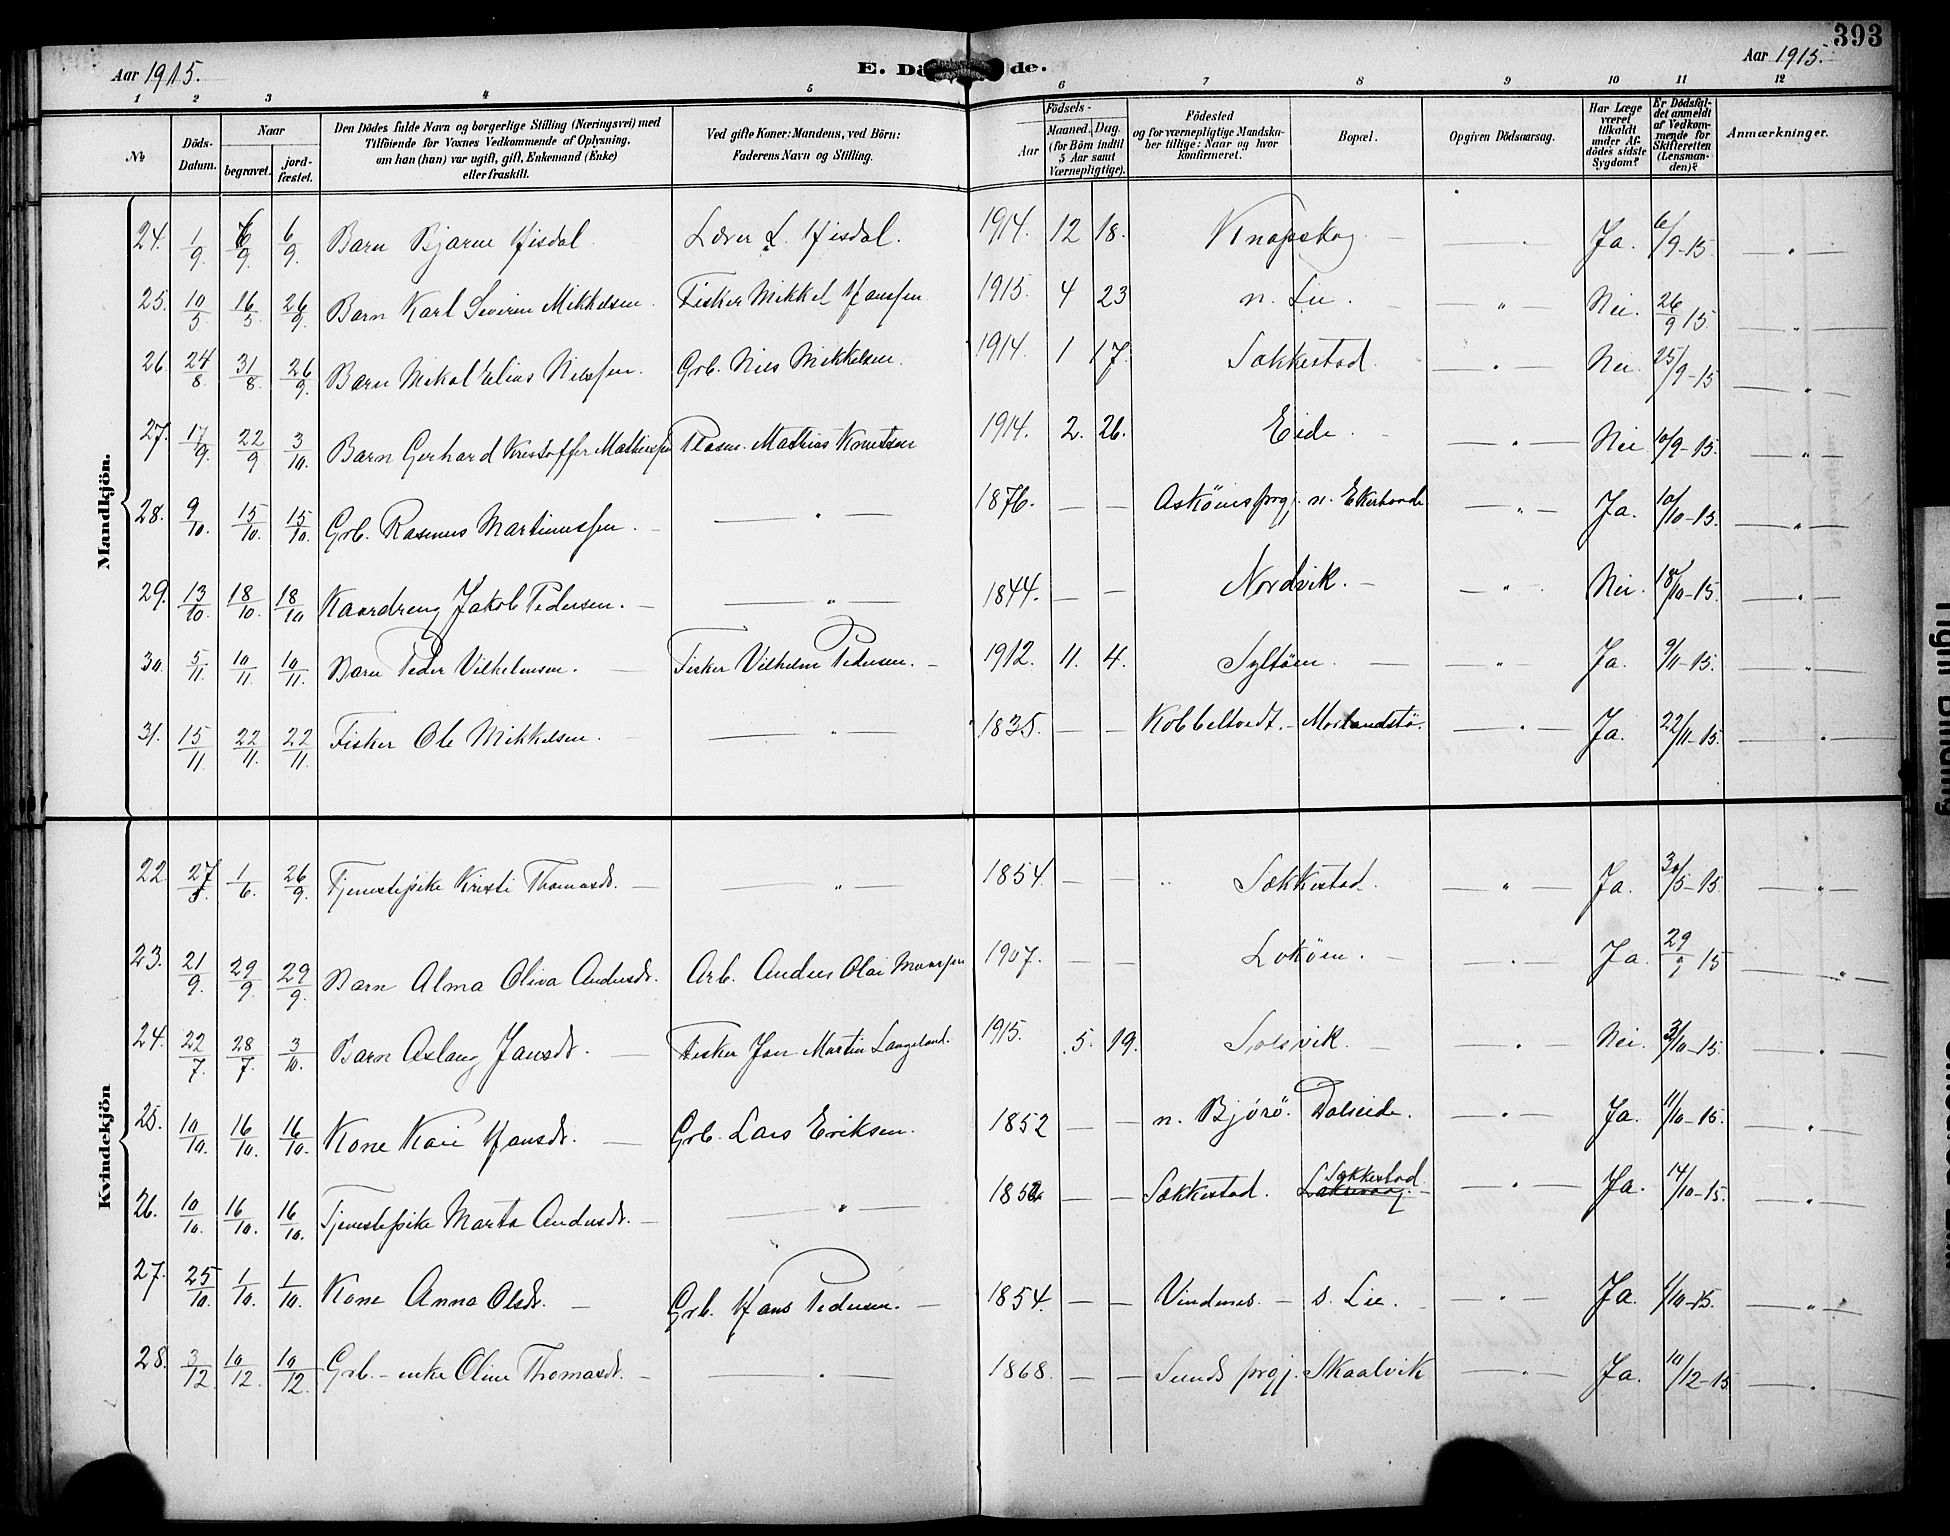 393
Aar 1915.
E. Dö de.
Aar 1915.
1 2 3 4 5 6 7 8 9 10 11 12
No
Döds-Datum.
Naar
begravet.
jord-fæstet.
Den Dödes fulde Navn og borgerlige Stilling (Næringsvei) med
Tilföiende for Voxnes Vedkommende af Oplysning,
om han (hun) var ugift, gift, Enkemand (Enke)
eller fraskilt.
Ved gifte Koner: Mandens, ved Börn:
Faderens Navn og Stilling.
Födsels-
Aar
Maaned. Dag.
(for Börn indtil
5 Aar samt
Værnepligtige).
Födested
og for værnepligtige Mandska-
ber tillige: Naar og hvor
konfirmeret.
Bopæl.
Opgiven Dödsaarsag.
Har Læge
været
tilkaldt
under Af-
dödes sidste
Sygdom?
Er Dödsfal-
det anmeldt
af Vedkom-
mende for
Skifteretten
(Lensman-
den)?
Anmærkninger.
Mandkjön.
24. 1/9 6/9 6/9 Barn Bjarne Hisdal. Lærer L. Hisdal. 1914. 12 18. Knapskog — " Ja. 6/9-15 "
25. 10/5 16/5 26/9 Barn Karl Severin Mikkelsen. Fisker Mikkel Hanssen 1915. 4 23 n. Lie. — " — Nei. 26/9 15. — " —
26. 24/8 31/8 26/9 Barn Mikal Elias Nilssen. Grb. Nils Mikkelsen. 1914. 1 17. Sækkestad. — " — Nei. 25/9-15 — " —
27. 17/9. 22/9 3/10. Barn Gerhard Kristoffer Mathiassen Plasm. Mathias Knutsen 1914. 2. 26. Eide. — " — Nei 10/9-15. — " —
28. 9/10. 15/10. 15/10. Grb. Rasmus Martinussen. — " — 1876. — — Askøens prgj. n. Ekerhovde — " — Ja. 10/10-15. — " —
29. 13/10 18/10. 18/10 Kaardreng Jakob Pedersen. — — " — 1844. — — Nordvik. — " Nei. 18/10-15. — " —
30. 5/11 10/11 10/11. Barn Peder Vilhelmsen. — Fisker Vilhelm Pedersen. — 1912. 11. 4. Syltøen. — " — Ja. 9/11-15. — " —
31. 15/11. 22/11. 22/11. Fisker Ole Mikkelsen. — " — 1835. — — Kobbeltvedt. — Morlandstø. — " — Ja. 22/11-15. — " —
Kvindekjön
22. 27/5 1/6. 26/9. Tjenestepike Kristi Thomasdr. — — " — 1854. — — " Sækkestad. — " — Ja. 30/5-15 — " —
23. 21/9. 29/9. 29/9. Barn Alma Oliva Andersdr. Arb. Anders Olai Monssen 1907. — — Lokøen. — — " — Ja. 29/9 15 — " —
24. 22/7. 28/7. 3/10. Barn Aslaug Jansdr. — Fisker Jan Martin Langeland. 1915. 5. 19. Solsvik. — — " — Nei. 3/10-15. — " —
25. 10/10. 16/10. 16/10. Kone Kari Hansdr. — Grb. Lars Eriksen. 1852 — — n. Bjórø. Dalseide. — " — Ja. 11/10-15. — " —
Sækkestad
26. 10/10. 16/10. 16/10. Tjenestepike Marta Andersdr. — — " — 1852 — — Sækkestad. Laksevaag. — — " — Ja. 14/10-15. — " —
27. 25/10. 1/10. 1/10. Kone Anna Olsdr. — Grb. Hans Pedersen. — 1854. — — Vindenes. — s. Lie. — " — Ja. 1/10-15. — " —
28. 3/12. 10/12. 10/12. Grb. - enke Oline Thomasdr. — — " — 1868. — — Sunds prgj. Skaalvik — " — Ja. 10/12-15. — " —